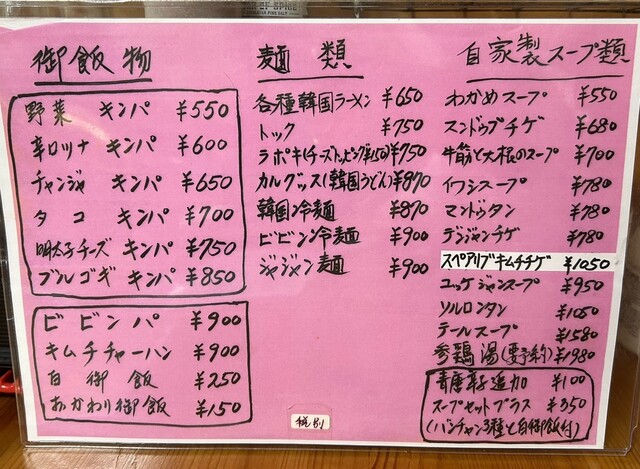 御飯物
野菜 キンパ ¥550
辛口ツナ キンパ ¥600
チャンジャ キンパ ¥650
タコ キンパ ¥700
明太子チーズ キンパ ¥750
プルゴギ キンパ ¥850
ビビンパ ¥900
キムチチャーハン ¥900
白御飯 ¥250
おかわり御飯 ¥150
麺類
各種韓国ラーメン ¥650
トック ¥750
ラポキ(チーズトッピング ¥750
カルグッス(韓国うどん) ¥870
韓国冷麺 ¥870
ビビン冷麺 ¥900
ジャジャン麺 ¥900
税別
自家製スープ類
わかめスープ ¥550
スンドゥブチゲ ¥680
牛筋と大根のスープ ¥700
イワシスープ ¥780
マンドゥタン ¥780
テンジャンチゲ ¥780
スペアリブキムチチゲ ¥1050
ユッケジャンスープ ¥950
ソルロンタン ¥1050
テールスープ ¥1580
参鶏湯(要予約) ¥1980
青唐辛子追加 ¥100
スープセットプラス ¥350
(バンチャン3種と白御飯付)